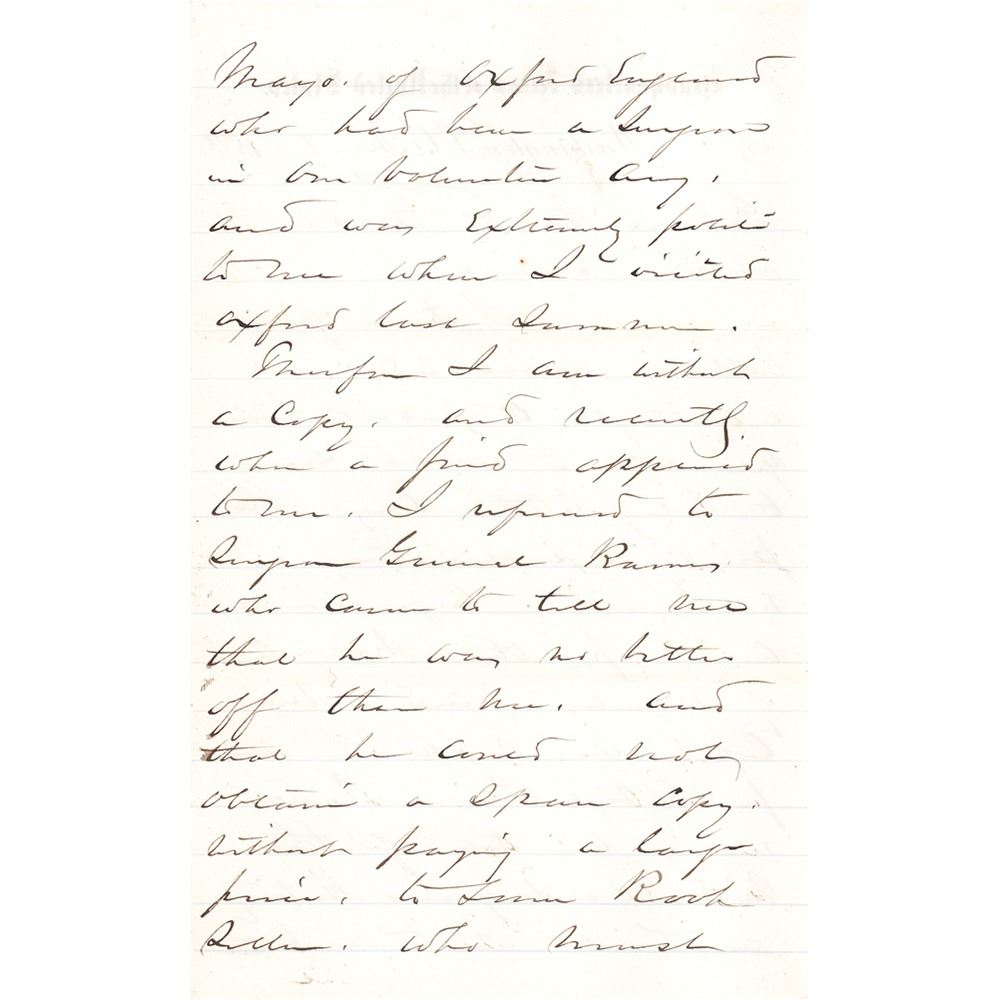 Mayo. of Oxford England
who had been a Surgeon
in our Volunteer Army.
and was Extremely polite
to me when I visited
Oxford last Summer.
Therefore I am without
a Copy. and recently
when a friend appeared
to me. I referred to
Surgeon General Barnes
who came to tell me
that he was no better
off than me. and
that he could not
obtain a Spare Copy.
without paying a large
price. to Some Book
Seller. who must